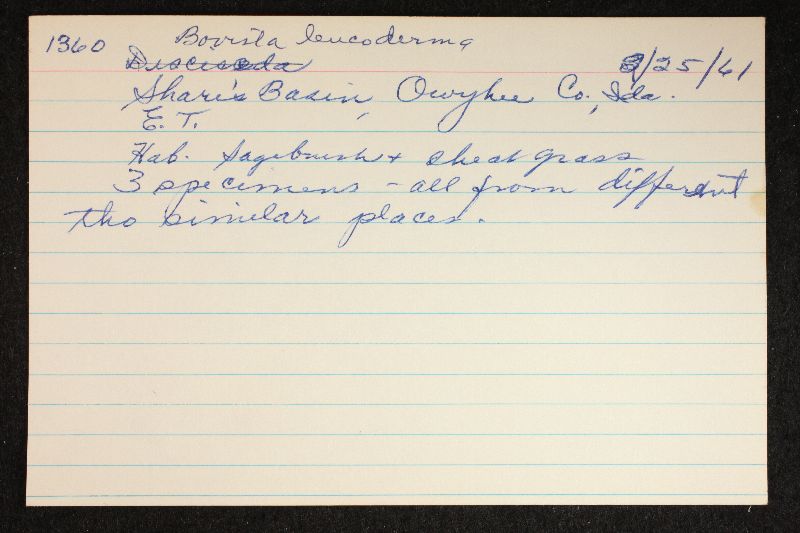 1360 Bovista leucoderma
Disciseda /25/61
Share's Basin, Owyhee Co., Ida.
E. T.
Hab. Sagebrush + cheat grass
3 specimens - all from different
tho similar places.